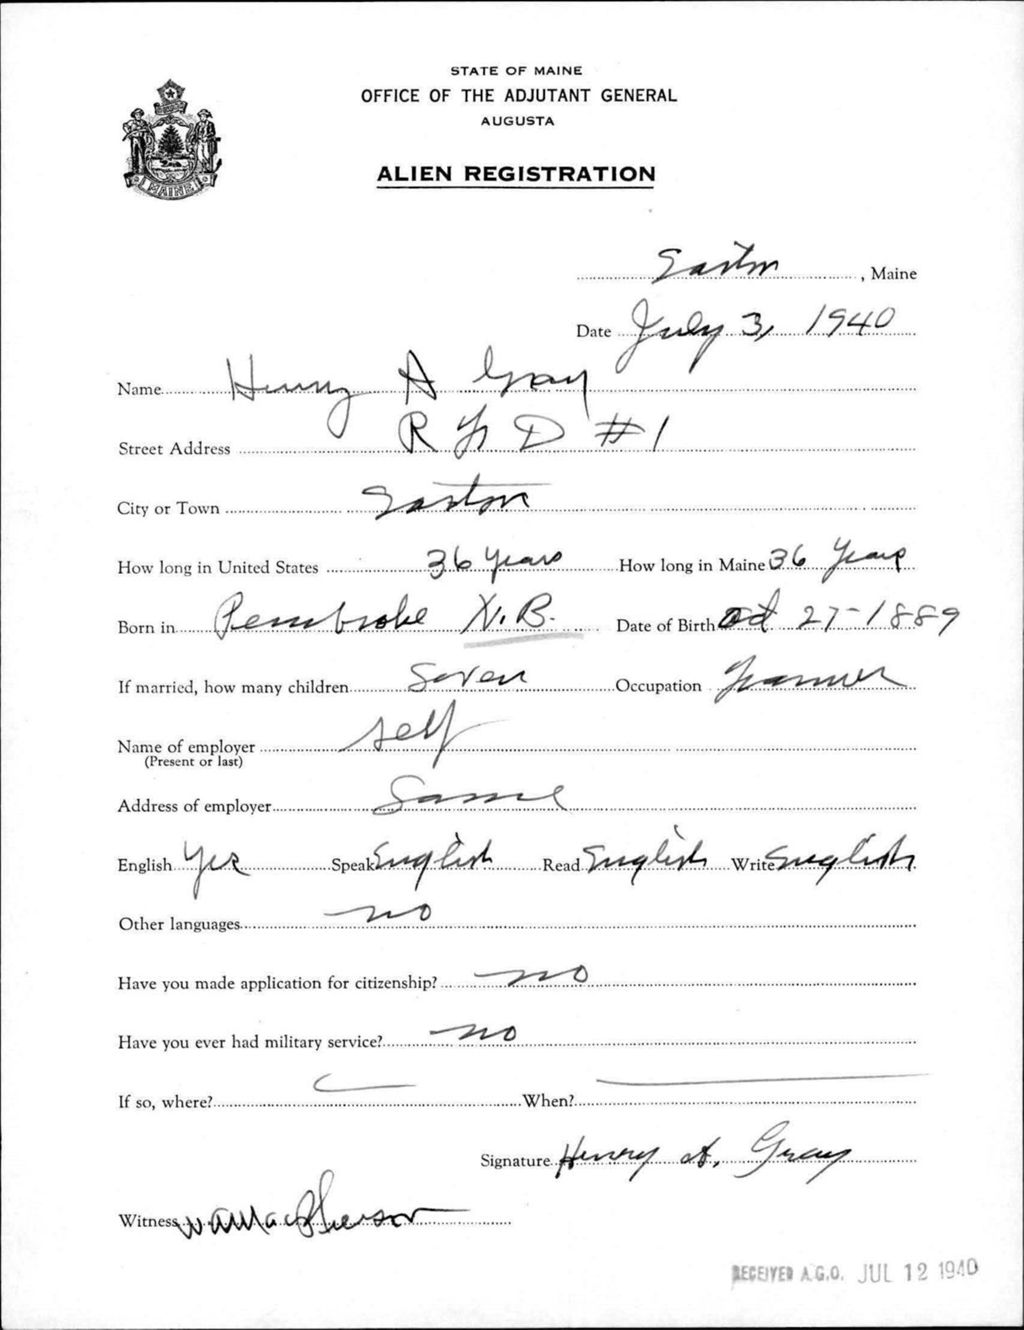 STATE OF MAINE
OFFICE OF THE ADJUTANT GENERAL
AUGUSTA
ALIEN REGISTRATION
MAINE
Easton, Maine
Date July 3, 1940
Name Henry A Gray
Street Address R F D #1
City or Town Easton
How long in United States 36 years How long in Maine 36 years
Born in Pembroke N.B. Date of Birth Oct 27-1889
If married, how many children Seven Occupation Farmer
Name of employer self
(Present or last)
Address of employer Same
English Yes Speak English Read English Write English
Other languages no
Have you made application for citizenship? no
Have you ever had military service? no
If so, where? When?
Signature Henry A. Gray
Witness W A MacPherson
RECEIVED A.G.O. JUL 12 1940